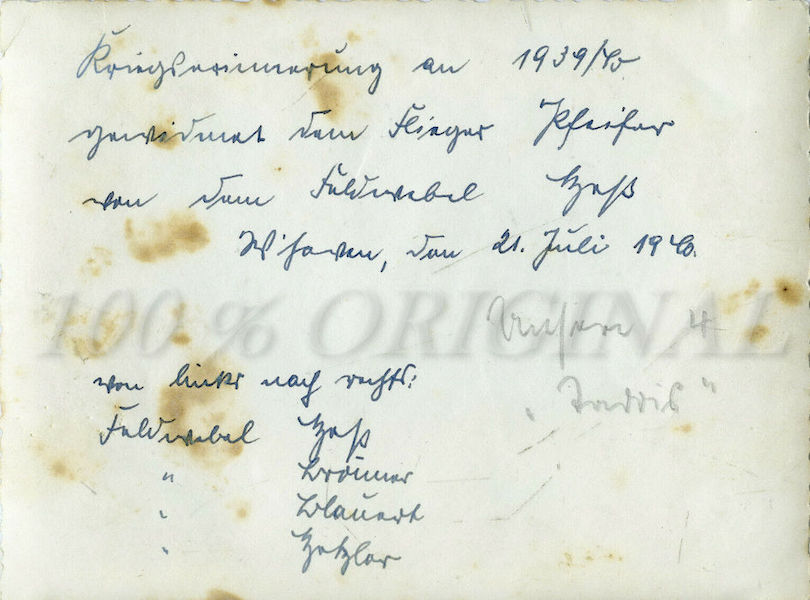 Kriegserinnerung an 1939/40
gewidmet dem Flieger Pfeifer
von dem Feldwebel Heß
W'haven, den 21. Juli 1940.
100 % ORIGINAL
Unsere 4
von links nach rechts:
"
Feldwebel Heß
" Brönner
" Blauert
" Hetzler